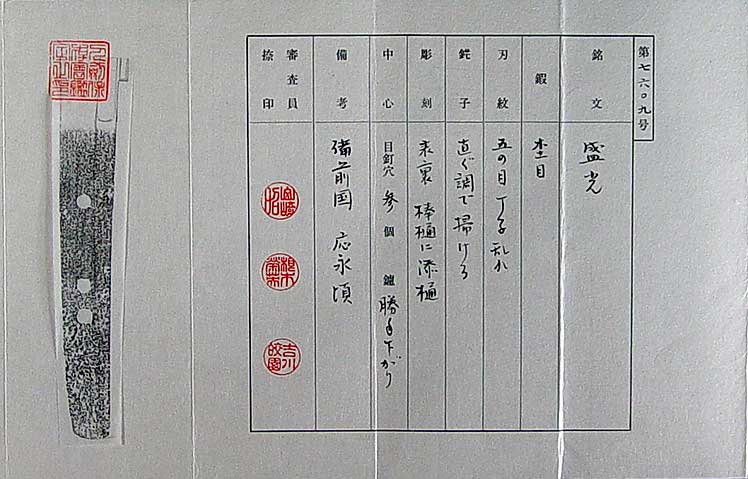 第七六〇九号
銘文 盛光
鍜 杢目
刃紋 五の目丁子乱れ
鋩子 直ぐ調で掃ける
彫刻 表裏 棒樋に添樋
中心 目釘穴 参個 鑢 勝手下がり
備考 備前国 応永頃
審査員捺印